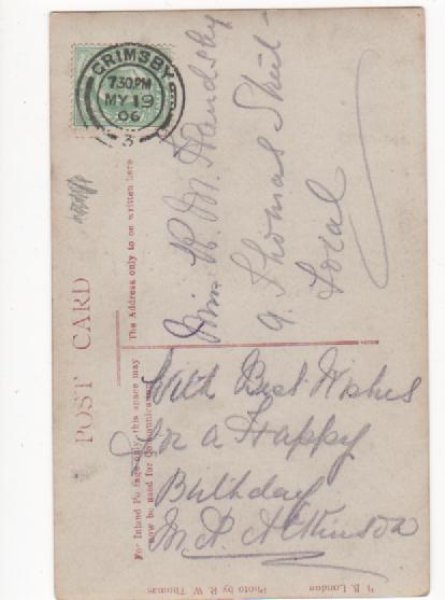 GRIMSBY
7.30PM
MY 19
06
3
POST CARD
The Address only to be written here
For Inland Postage only, this space may
now be used for Communication
Miss K. M. Handsley
9. Thomas Street
Local
With Best Wishes
for a Happy
Birthday
M A Atkinson
Photo by R. W. Thomas
B. London